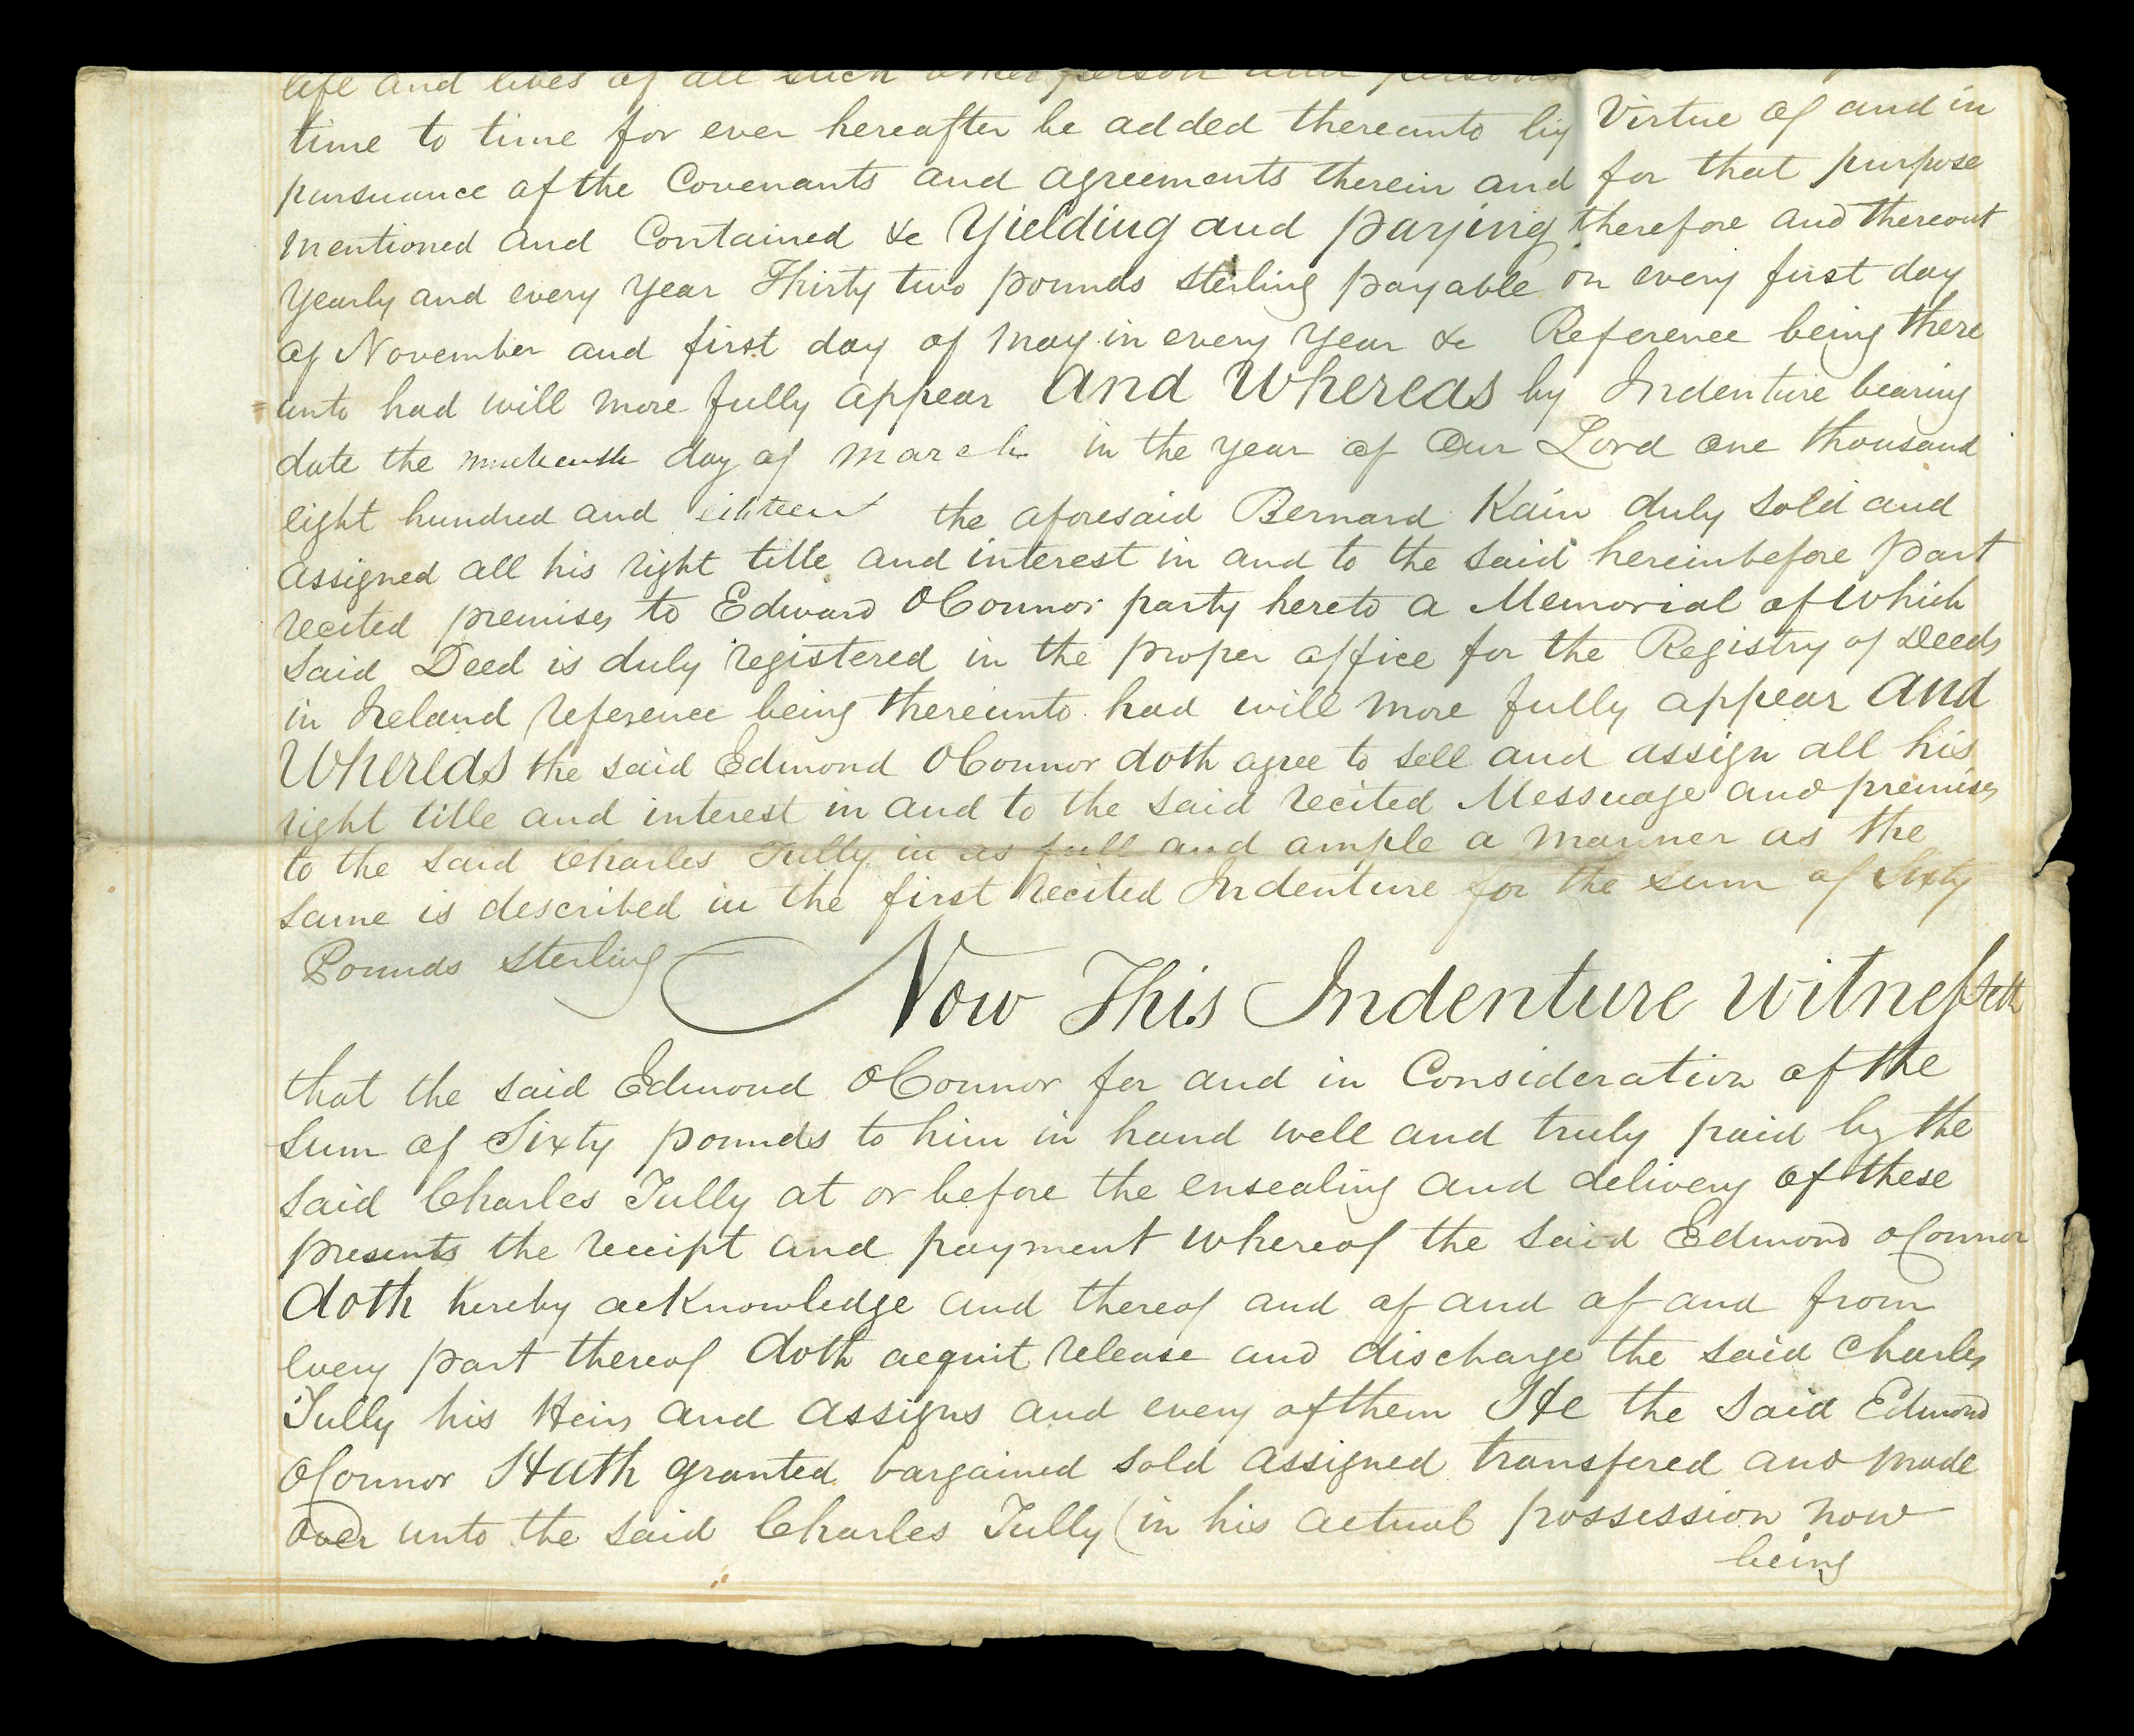 life and lives of all such other person and persons
time to time for ever hereafter be added thereunto by Virtue of and in
pursuance of the Covenants and agreements therein and for that purpose
mentioned and Contained &c Yielding and paying therefore and thereout
Yearly and every Year Thirty two pounds sterling payable on every first day
of November and first day of May in every Year &c Reference being there
unto had will more fully appear and Whereas by Indenture bearing
date the day of march in the year of Our Lord One thousand
eight hundred and eihteen the aforesaid Bernard Kain duly sold and
assigned all his right title and interest in and to the said hereinbefore part
recited premises to Edward OConnor party hereto a Memorial of which
said Deed is duly registered in the proper office for the Registry of Deeds
in Ireland reference being thereunto had will more fully appear and
Whereas the said Edmond OConnor doth agree to sell and assign all his
right title and interest in and to the said recited Messuage and premises
to the said Charles Tully in as full and ample a manner as the
same is described in the first recited Indenture for the sum of Sixty
Pounds sterling Now This Indenture witnesseth
that the said Edmond OConnor for and in Consideration of the
sum of Sixty pounds to him in hand well and truly paid by the
said Charles Tully at or before the ensealing and delivery of these
presents the receipt and payment whereof the said Edmond OConnor
doth hereby acknowledge and thereof and of and of and from
every part thereof doth acquit release and discharge the said Charles
Tully his Heirs and assigns and every of them He the said Edmond
OConnor Hath granted bargained sold assigned transfered and made
over unto the said Charles Tully (in his actual possession now
being